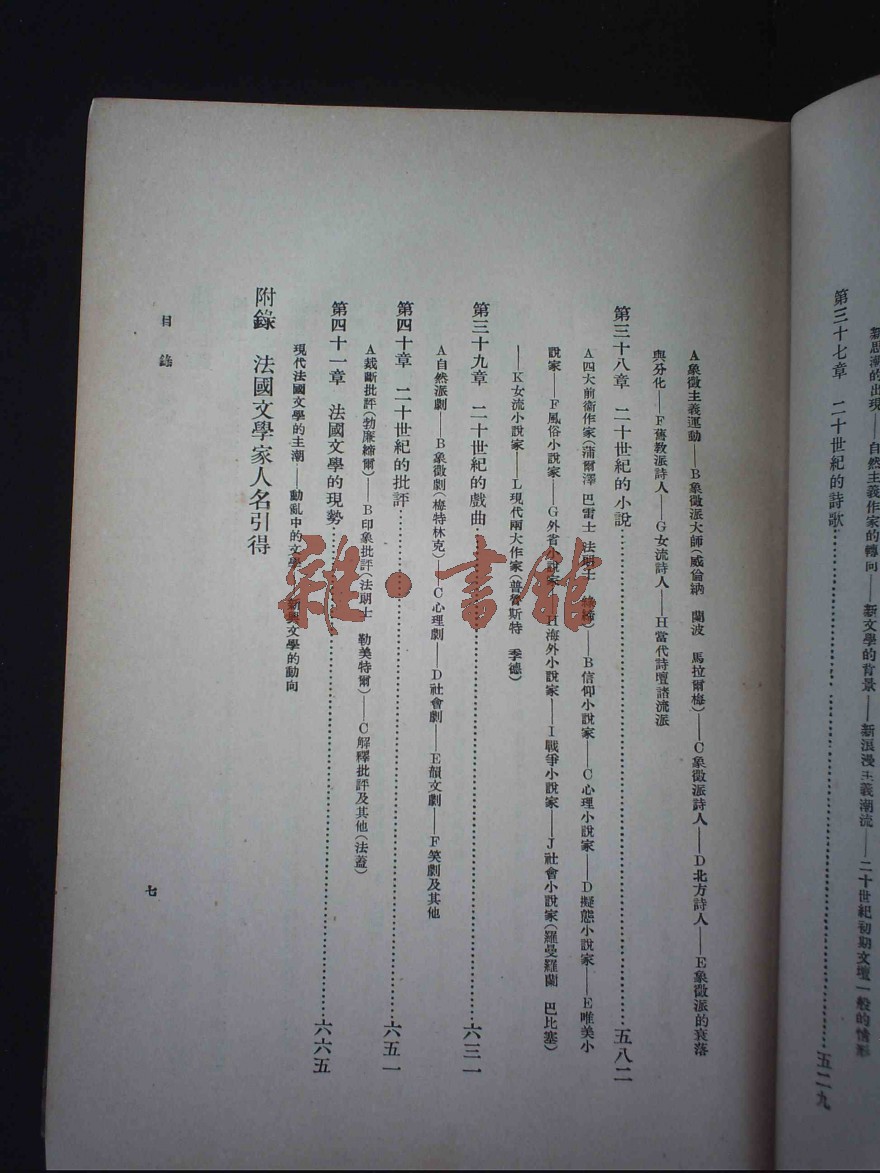 新思潮的出現——自然主義作家的轉向——新文學的背景——新浪漫主義潮流——二十世紀初期文壇一般的情形
第三十七章　二十世紀的詩歌……五二九
A象徵主義運動——B象徵派大師(威倫納　蘭波　馬拉爾梅)——C象徵派詩人——D北方詩人——E象徵派的衰落
與分化——F舊教派詩人——G女流詩人——H當代詩壇諸流派
第三十八章　二十世紀的小說……五八二
A四大前衞作家(蒲爾澤　巴雷士　法朗士　綠締)——B信仰小說家——C心理小說家——D擬態小說家——E唯美小
說家——F風俗小說家——G外省小說家——H海外小說家——I戰爭小說家——J社會小說家(羅曼羅蘭　巴比塞)
——K女流小說家——L現代兩大作家(普魯斯特　季德)
第三十九章　二十世紀的戲曲……六三一
A自然派劇——B象徵劇(梅特林克)——C心理劇——D社會劇——E韻文劇——F笑劇及其他
第四十章　二十世紀的批評……六五一
A裁斷批評(勃廉締爾)——B印象批評(法朗士　勒美特爾)——C解釋批評及其他(法蓋)
第四十一章　法國文學的現勢……六六五
現代法國文學的主潮——動亂中的文學——新興文學的動向
附錄　法國文學家人名引得
目錄
七
雜·書館